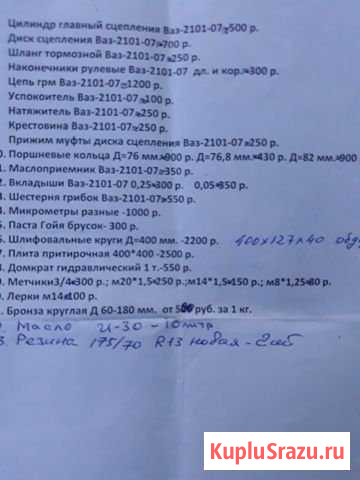 Цилиндр главный сцепления Ваз-2101-07-500 р.
Диск сцепления Ваз-2101-07-700 р.
Шланг тормозной Ваз-2101-07-250 р.
Наконечники рулевые Ваз-2101-07 дл. и кор.-300 р.
Цепь грм Ваз-2101-07-1200 р.
Успокоитель Ваз-2101-07-100 р.
Натяжитель Ваз-2101-07-250 р.
Крестовина Ваз-2101-07-250 р.
Прижим муфты диска сцепления Ваз-2101-07-250 р.
0. Поршневые кольца Д=76 мм.-900 р. Д=76,8 мм.-430 р. Д=82 мм.-900
1. Маслоприемник Ваз-2101-07-350 р.
2. Вкладыши Ваз-2101-07 0,25-300 р. 0,05-350 р.
4. Шестерня грибок Ваз-2101-07-550 р.
4. Микрометры разные -1000 р.
5. Паста Гойя брусок- 300 р.
6. Шлифовальные круги Д=400 мм. -2200 р. 400х127х40
7. Плита притирочная 400*400 -2500 р.
8. Домкрат гидравлический 1 т.-550 р.
9. Метчики3/4-300 р.; м20*1,5-250 р.;м14*1,5-150 р.; м8*1,25-80 р.
0. Лерки м14-100 р.
. Бронза круглая Д 60-180 мм. от руб. за 1 кг.
Масло И-30 - 10 литр
3 Резина 175/70 R13 новая -
KupluSrazu.ru